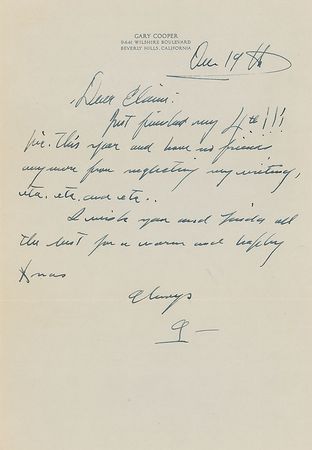 GARY COOPER
9441 WILSHIRE BOULEVARD
BEVERLY HILLS, CALIFORNIA
Dec 19th
Dear
Just finished my 4th!!!
pic. this year and have no friends
anymore from neglecting my writing,
etc. etc. and etc..
I wish you and all
the best for a warm and happy
Xmas
Always
G —